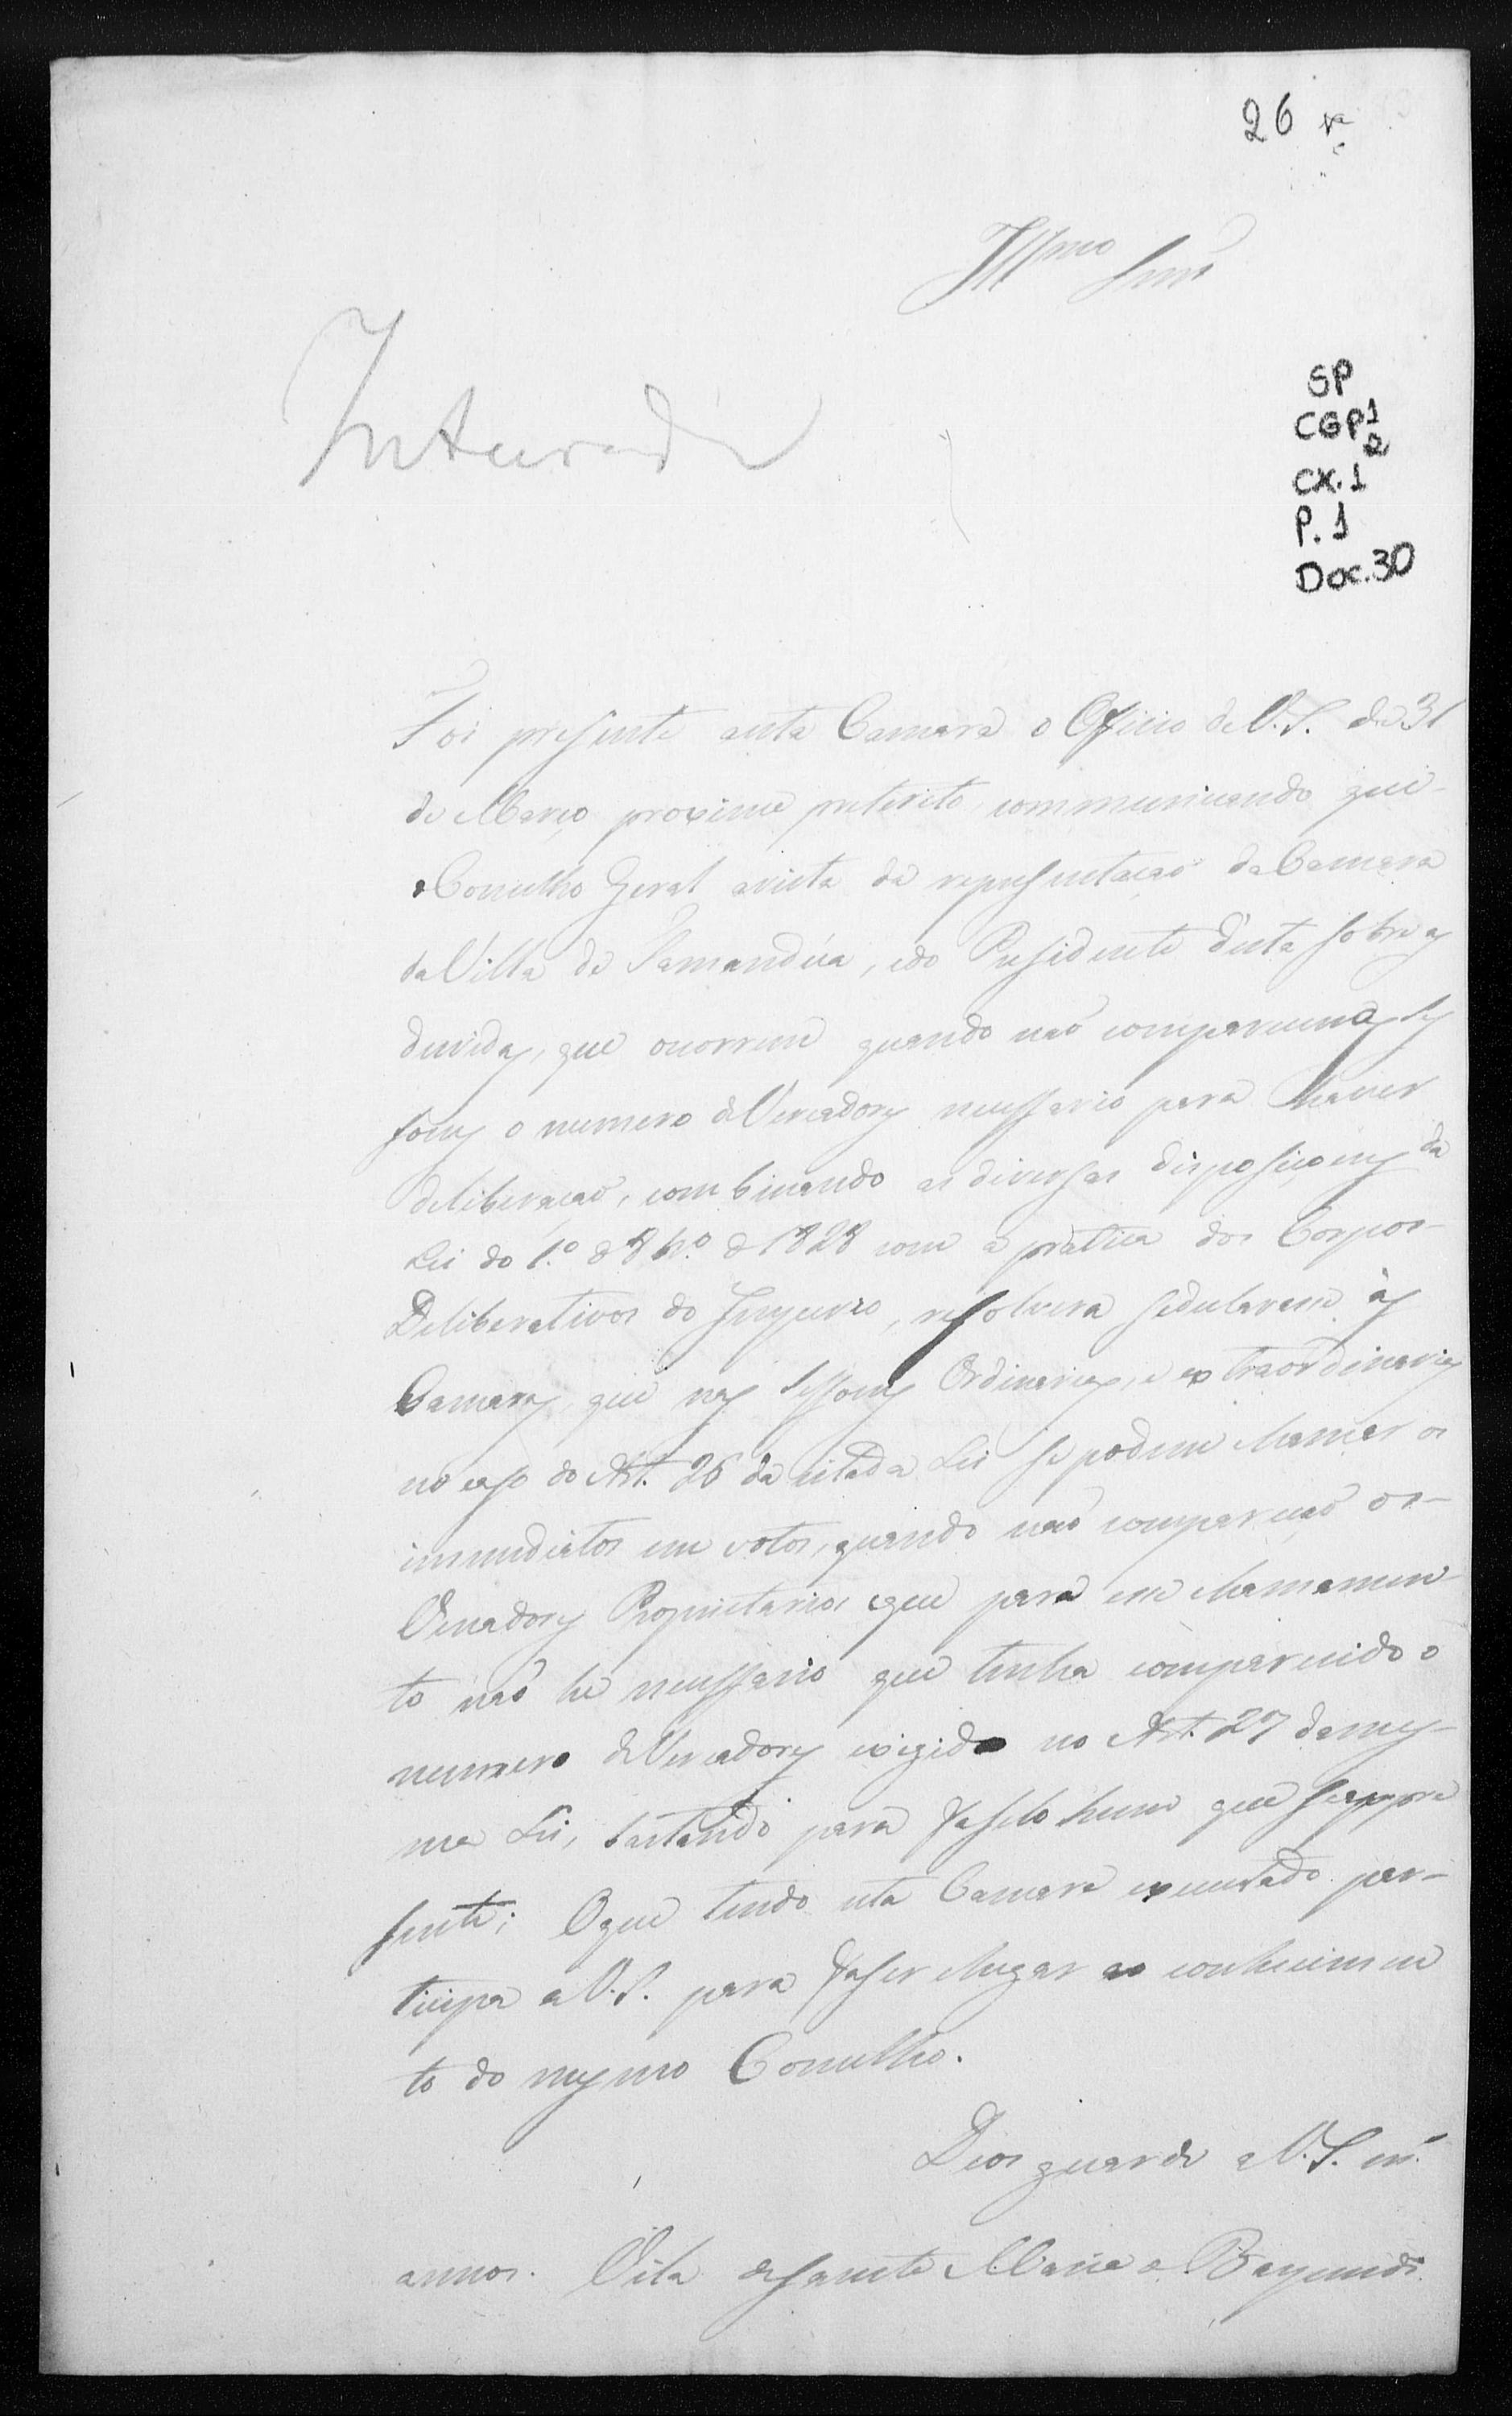 26
Illmo Snr
Inteirada
SP
CGP 1
2
CX. 1
P. 1
Doc. 30
Foi presente aesta Camara o Officio de V. S. de 31
de Março proximo preterito communicando que
o Concelho Geral avista da representacaõ da Camara
da Villa de Tamandúa, edo Presidente d'esta sobre as
duvidas, que ocorrem quando naõ comparecem as Ses
soens o numero de Vereadores necessario para haver
deliberacaõ, combinando as diversas disposiçoens da
Lei do 1.º de 8br.º de 1828 com a pratica dos Corpos
Deliberativos do Imperio, resolvera declararem ás
Camaras, que nas Sessoens Ordinarias, e extraordinarias
no caso do Art. 26 da citada Lei se podem chamar os
immediatos em votos, quando naõ compareçaõ os
Vereadores Proprietarios eque para esse chamamen-
to naõ he necessario que tenha comparecido o
numero de Vereadores exigido no Art. 27 da mes-
ma Lei, bastando para faselo hum que seapre
sente; Oque tendo esta Camara executado par-
ticipa a V. S. para faser chegar ao conhecimen
to do mesmo Concelho.
Deos guarde a V. S. m.
annos. Vila de Santa Maria de Baependi